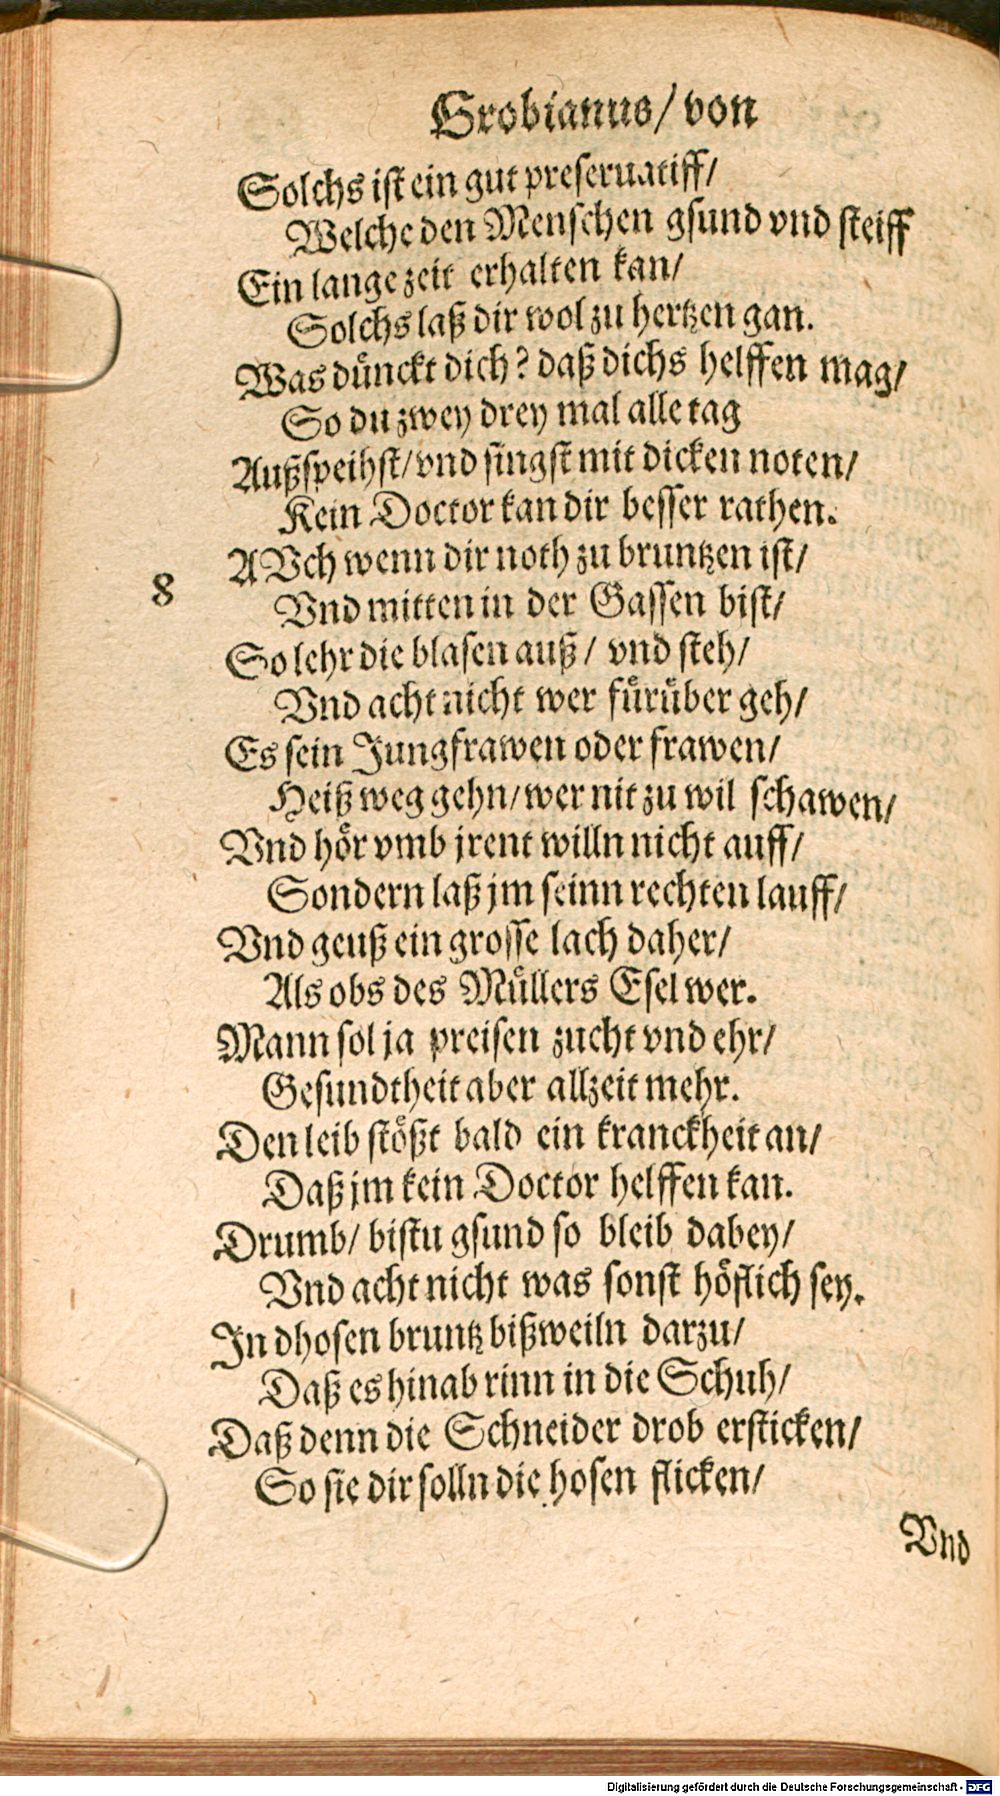 Grobianus/ von
Solchs ist ein gut preseruatiff/
Welche den Menschen gsund vnd steiff
Ein lange zeit erhalten kan/
Solchs laß dir wol zu hertzen gan.
Was dünckt dich? daß dichs helffen mag/
So du zwey drey mal alle tag
Außspeihst/ vnd singst mit dicken noten/
Kein Doctor kan dir besser rathen.
8 AVch wenn dir noth zu bruntzen ist/
Vnd mitten in der Gassen bist/
So lehr die blasen auß/ vnd steh/
Vnd acht nicht wer fürüber geh/
Es sein Jungfrawen oder frawen/
Heiß weg gehn/ wer nit zu wil schawen/
Vnd hör vmb jrent willn nicht auff/
Sondern laß jm seinn rechten lauff/
Vnd geuß ein grosse lach daher/
Als obs des Müllers Esel wer.
Mann sol ja preisen zucht vnd ehr/
Gesundtheit aber allzeit mehr.
Den leib stößt bald ein kranckheit an/
Daß jm kein Doctor helffen kan.
Drumb/ bistu gsund so bleib dabey/
Vnd acht nicht was sonst höflich sey.
In dhosen bruntz bißweiln darzu/
Daß es hinab rinn in die Schuh/
Daß denn die Schneider drob ersticken/
So sie dir solln die hosen flicken/
Vnd
Digitalisierung gefördert durch die Deutsche Forschungsgemeinschaft - DFG